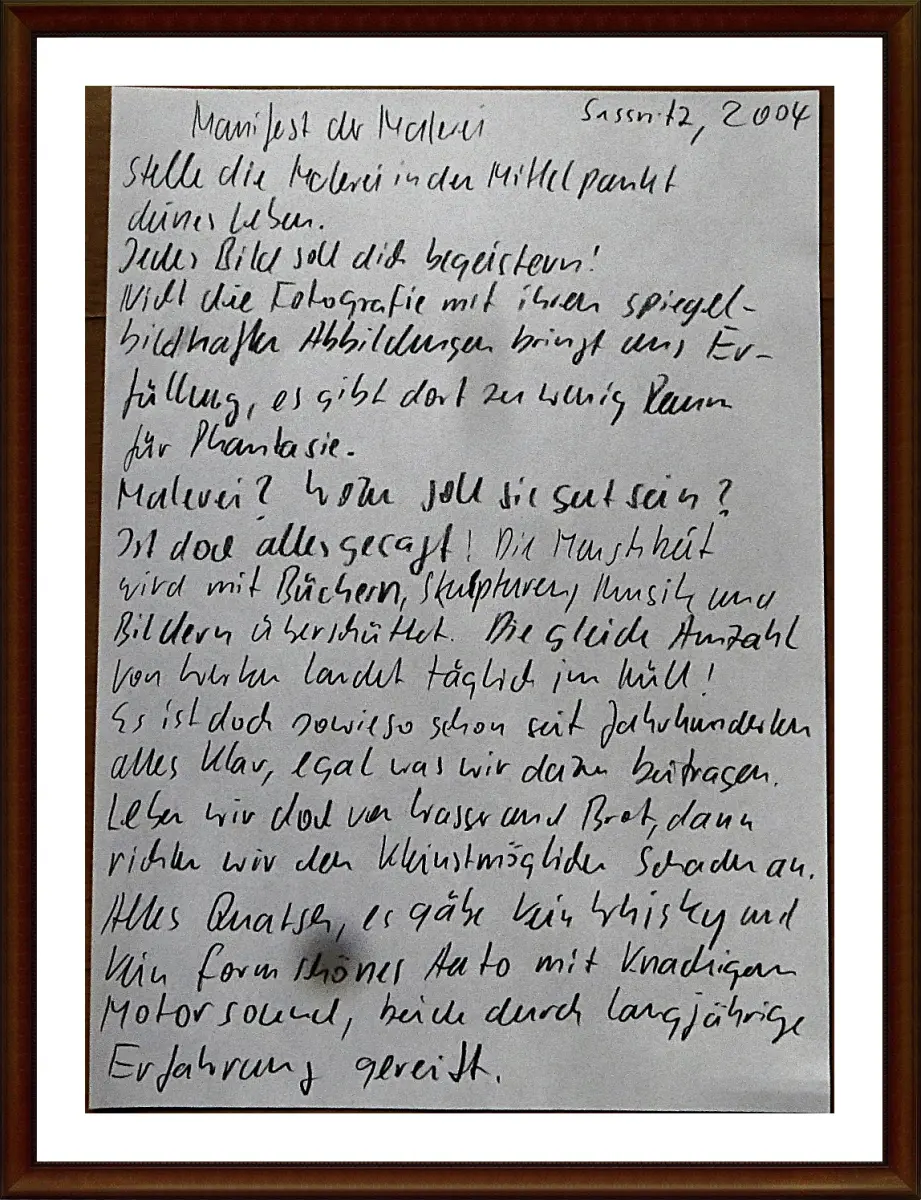 Manifest der Malerei
Sassnitz, 2004
Stelle die Malerei in den Mittelpunkt
deines Leben.
Jedes Bild soll dich begeistern!
Nicht die Fotografie mit ihren spiegel-
bildhaften Abbildungen bringt uns Er-
füllung, es gibt dort zu wenig Raum
für Phantasie.
Malerei? Wozu soll sie gut sein?
Ist doch alles gesagt! Die Menschheit
wird mit Büchern, Skulpturen, Musik und
Bildern überschüttet. Die gleiche Anzahl
von Werken landet täglich im Müll!
Es ist doch sowieso schon seit Jahrhunderten
alles klar, egal was wir dazu beitragen.
Leben wir doch von Wasser und Brot, dann
richten wir den kleinstmöglichen Schaden an.
Alles Quatsch, es gäbe kein Whisky und
kein formschönes Auto mit knackigem
Motorsound, beide durch langjährige
Erfahrung gereift.